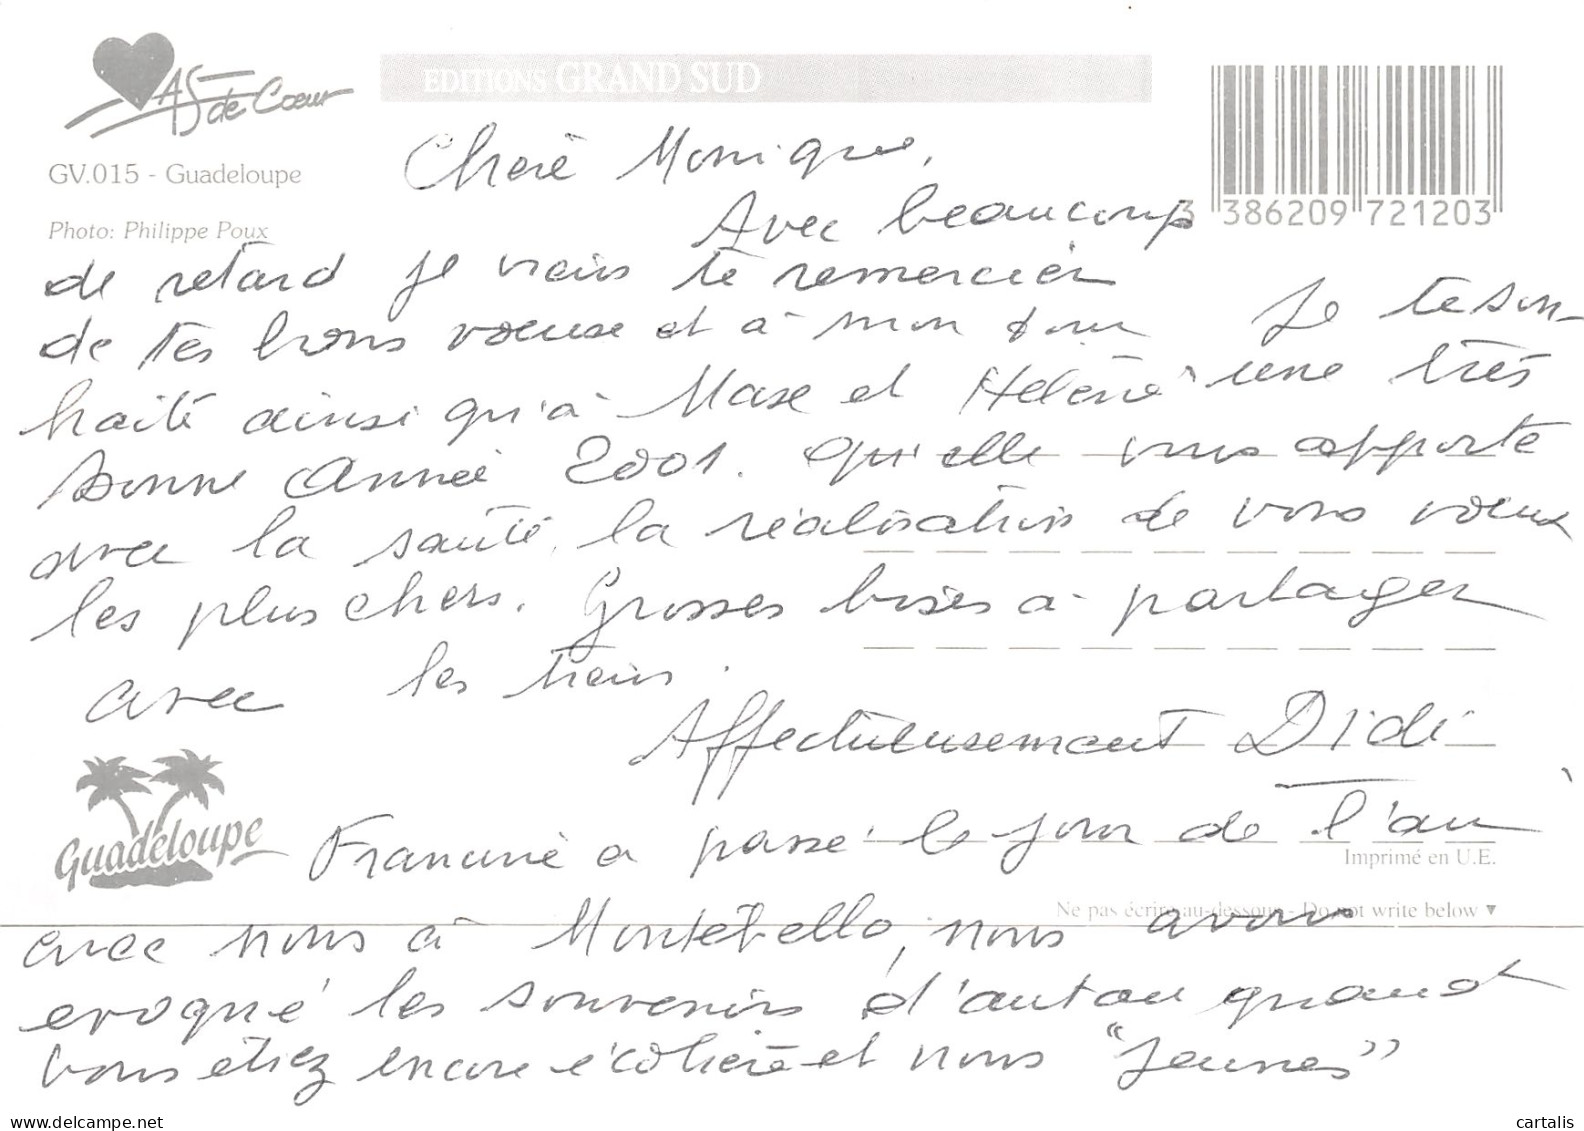 As de Cœur
EDITIONS GRAND SUD
GV.015 - Guadeloupe
Photo: Philippe Poux
3 386209 721203
Chère Monique,
Avec beaucoup
de retard je viens te remercier
de tes bons vœux et à mon tour je te sou-
haite ainsi qu'à Max et Hélène une très
bonne Année 2001. Qu'elle vous apporte
avec la santé, la réalisation de vos vœux
les plus chers. Grosses bises à partager
avec les tiens.
Affectueusement Didi
Guadeloupe
Francine a passé le jour de l'an
Imprimé en U.E.
Ne pas écrire au-dessous - Do not write below ▼
avec nous à Montebello, nous avons
evoqué les souvenirs d'antan quand
vous étiez encore écolière et nous "jeunes"
www.delcampe.net
cartalis